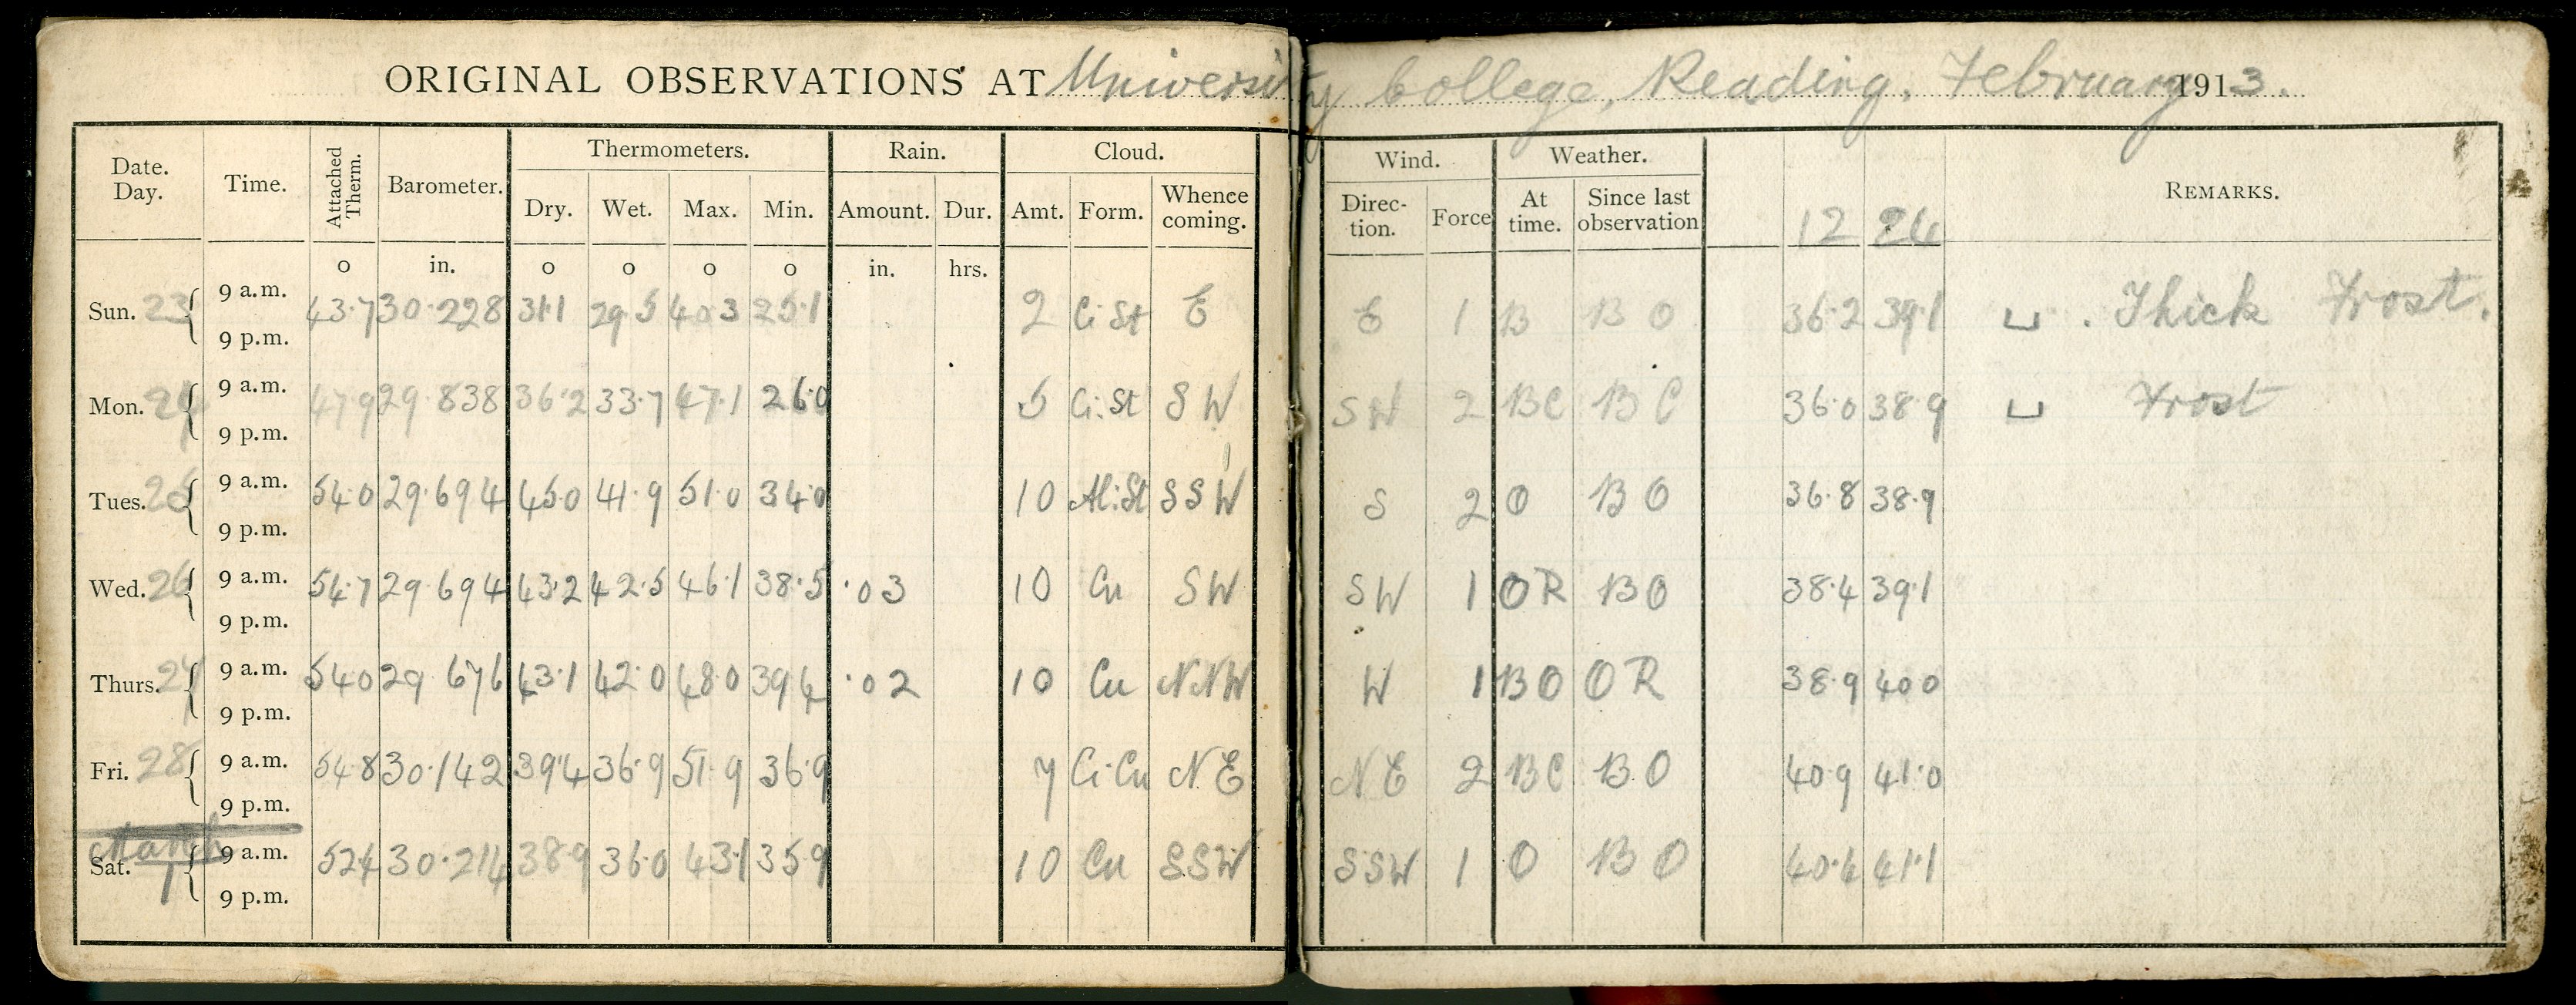 ORIGINAL OBSERVATIONS AT University College, Reading. February 1913.
Date. Day. Time. Attached Therm. Barometer. Thermometers. Rain. Cloud. Wind. Weather. REMARKS.
Dry. Wet. Max. Min. Amount. Dur. Amt. Form. Whence coming. Direc- tion. Force At time. Since last observation 12 24
o in. o o o o in. hrs.
Sun. 23 9 a.m. 43.7 30.228 31.1 29.5 40.3 25.1 2 Ci St E E 1 B B O 36.2 39.1 ⊔ . Thick Frost.
9 p.m.
Mon. 24 9 a.m. 47.9 29.838 36.2 33.7 47.1 26.0 5 Ci.St S W SW 2 BC B C 36.0 38.9 ⊔ Frost
9 p.m.
Tues. 25 9 a.m. 54.0 29.694 45.0 41.9 51.0 34.0 10 Al.St SSW S 2 O B O 36.8 38.9
9 p.m.
Wed. 26 9 a.m. 54.7 29.694 43.2 42.5 46.1 38.5 .03 10 Cu SW SW 1 OR BO 38.4 39.1
9 p.m.
Thurs. 27 9 a.m. 54.0 29.676 43.1 42.0 48.0 39.4 .02 10 Cu NNW W 1 BO OR 38.9 40.0
9 p.m.
Fri. 28 9 a.m. 54.8 30.142 39.4 36.9 51.9 36.9 7 Ci Cu N.E NE 2 BC B.O 40.9 41.0
9 p.m.
March
Sat. 1 9 a.m. 52.4 30.214 38.9 36.0 43.1 35.9 10 Cu SSW SSW 1 O B O 40.6 41.1
9 p.m.